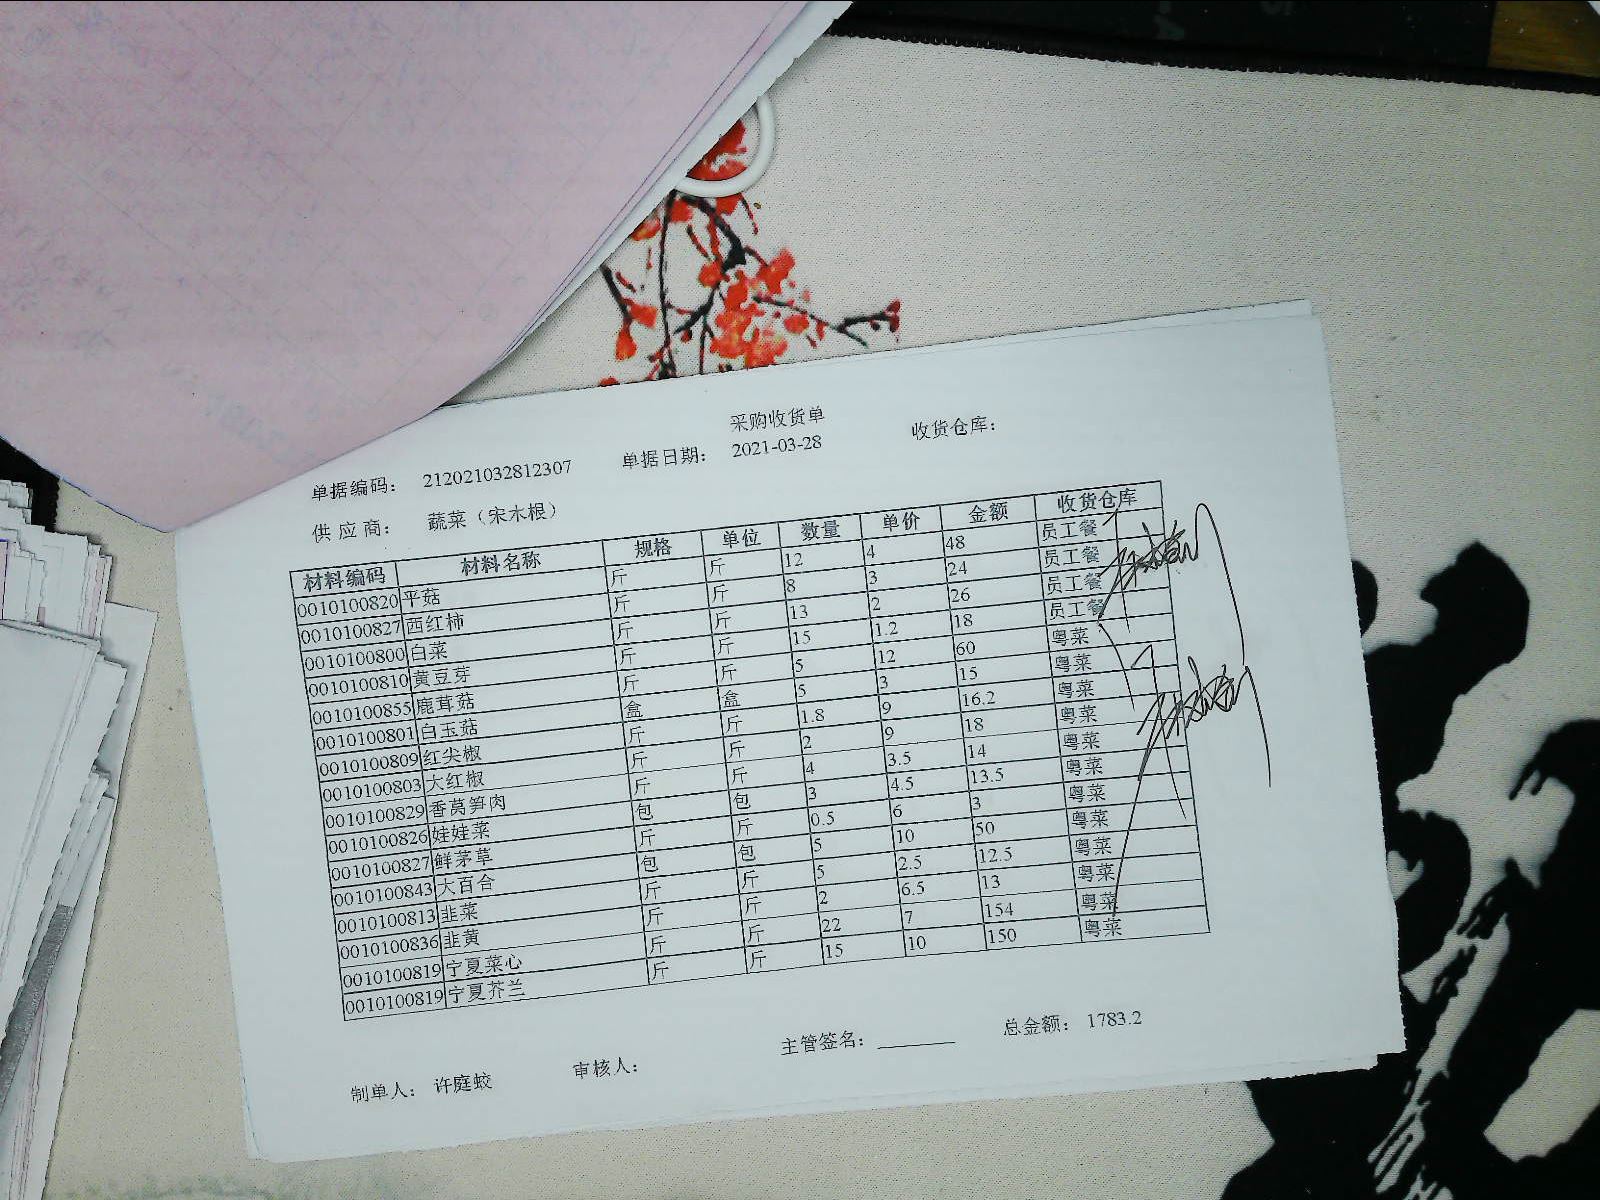 采购收货单
单据编码： 212021032812307 单据日期： 2021-03-28 收货仓库：
供应商： 蔬菜（宋木根）
材料编码 材料名称 规格 单位 数量 单价 金额 收货仓库
0010100820 平菇 斤 斤 12 4 48 员工餐
0010100827 西红柿 斤 斤 8 3 24 员工餐
0010100800 白菜 斤 斤 13 2 26 员工餐
0010100810 黄豆芽 斤 斤 15 1.2 18 员工餐
0010100855 鹿茸菇 斤 斤 5 12 60 粤菜
0010100801 白玉菇 盒 盒 5 3 15 粤菜
0010100809 红尖椒 斤 斤 1.8 9 16.2 粤菜
0010100803 大红椒 斤 斤 2 9 18 粤菜
0010100829 香莴笋肉 斤 斤 4 3.5 14 粤菜
0010100826 娃娃菜 包 包 3 4.5 13.5 粤菜
0010100827 鲜茅草 斤 斤 0.5 6 3 粤菜
0010100843 大百合 包 包 5 10 50 粤菜
0010100813 韭菜 斤 斤 5 2.5 12.5 粤菜
0010100836 韭黄 斤 斤 2 6.5 13 粤菜
0010100819 宁夏菜心 斤 斤 22 7 154 粤菜
0010100819 宁夏芥兰 斤 斤 15 10 150 粤菜
制单人： 许庭蛟 审核人： 主管签名： 总金额： 1783.2